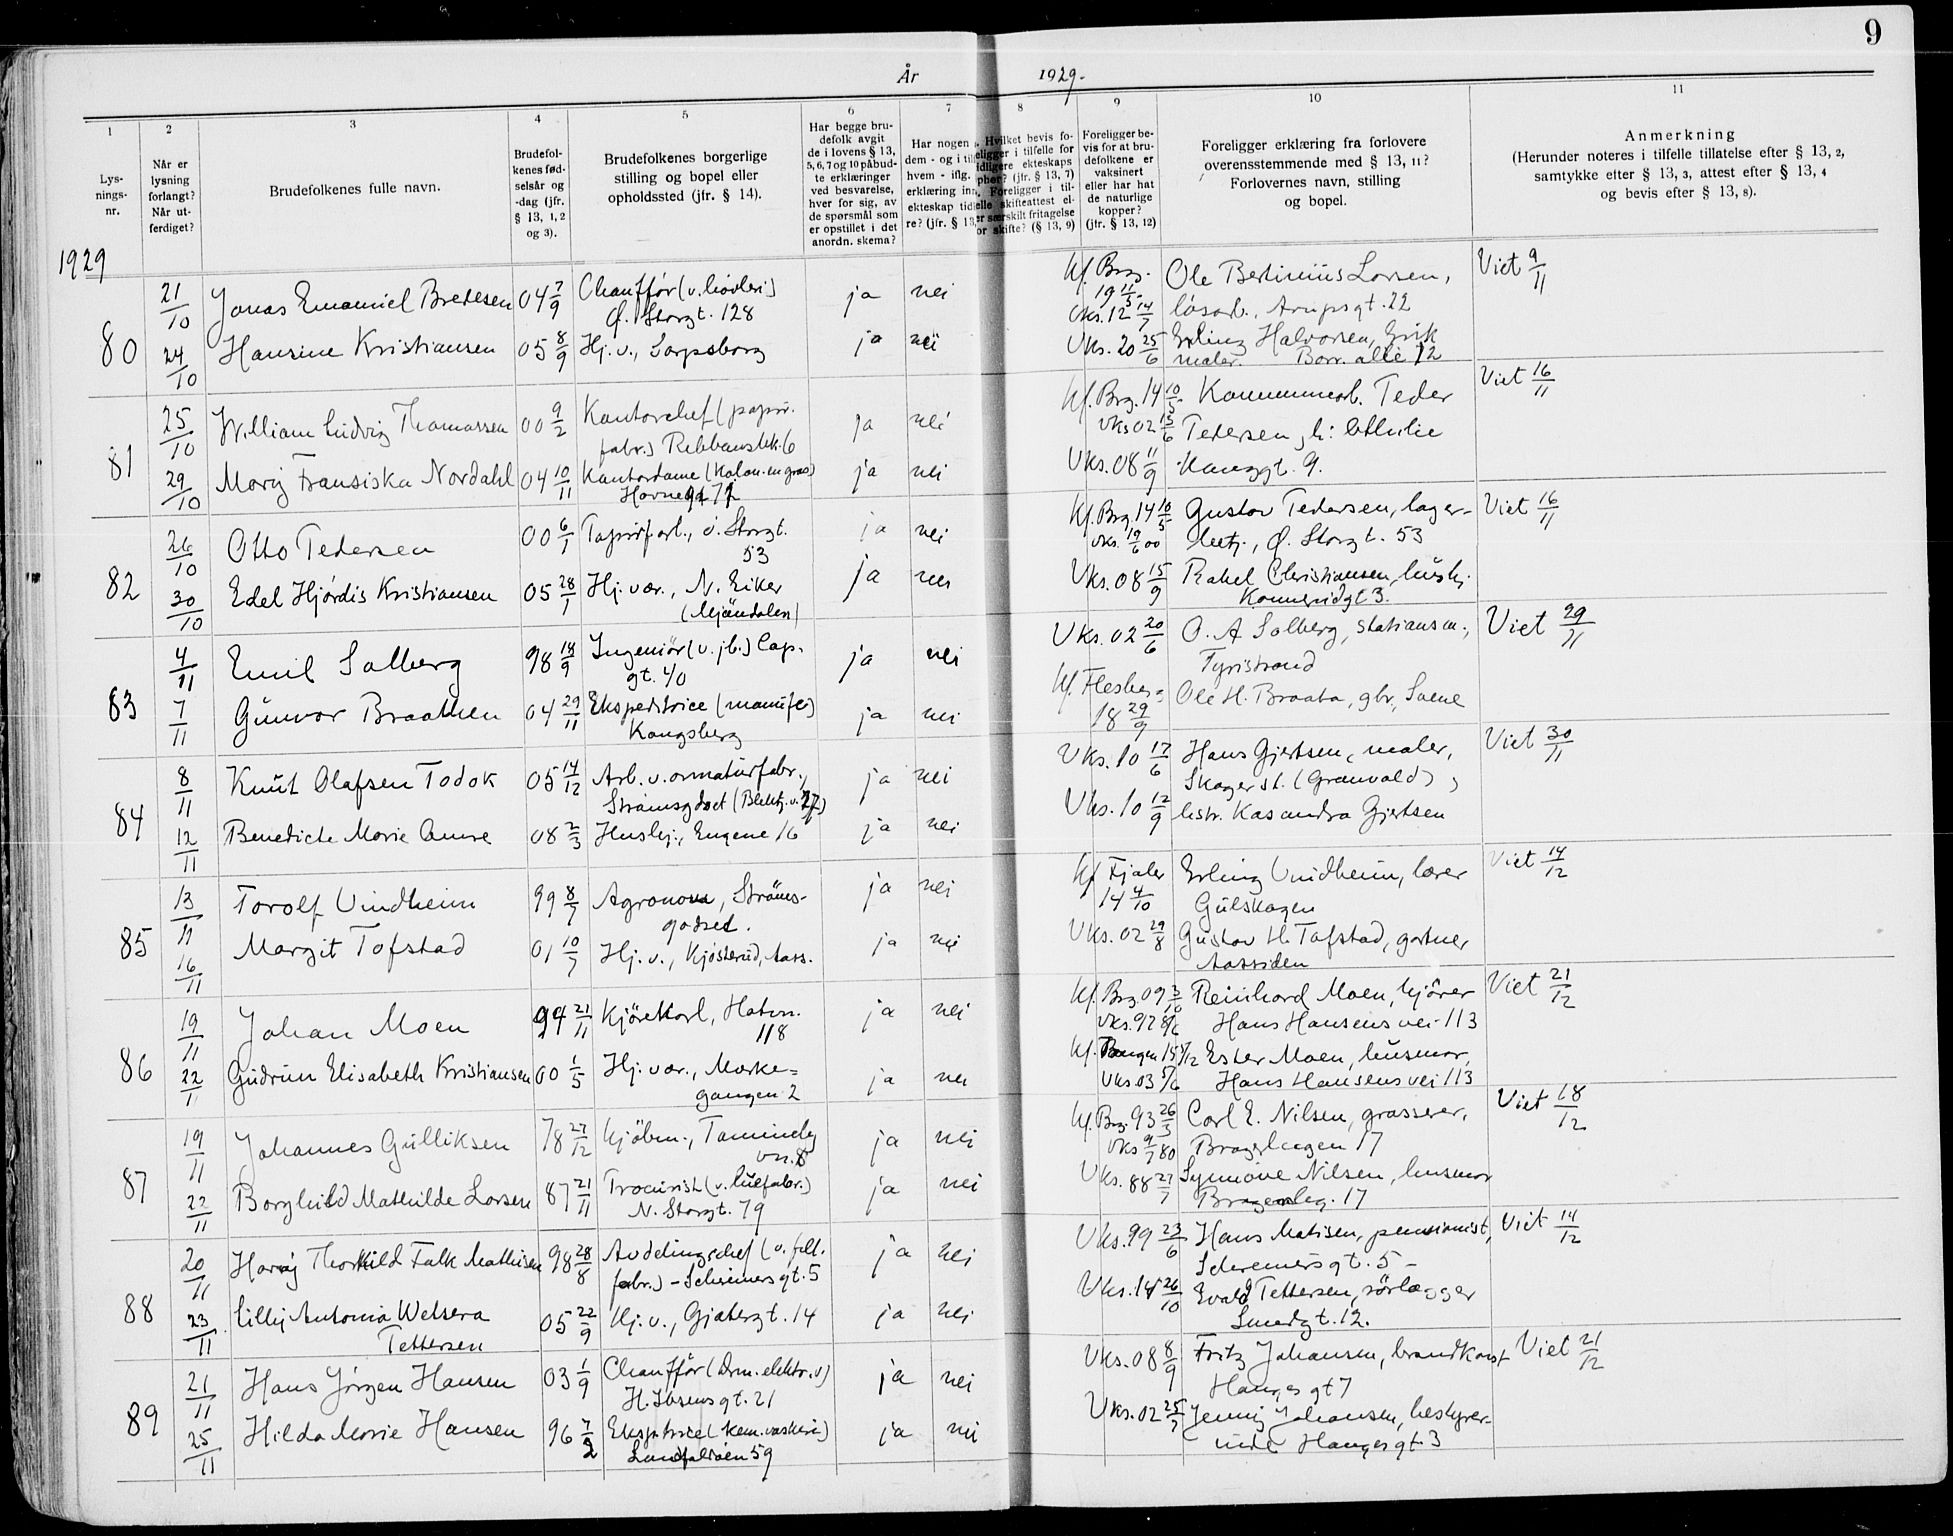 9
År 1929.
1 2 3 4 5 6 7 8 9 10 11
Lys-
nings-
nr.
Når er
lysning
forlangt?
Når ut-
ferdiget?
Brudefolkenes fulle navn.
Brudefol-
kenes fød-
selsår og
-dag (jfr.
§ 13, 1, 2
og 3).
Brudefolkenes borgerlige
stilling og bopel eller
opholdssted (jfr. § 14).
Har begge bru-
defolk avgit
de i lovens § 13,
5, 6, 7 og 10 påbud-
te erklæringer
ved besvarelse,
hver for sig, av
de spørsmål som
er opstillet i det
anordn. skema?
Har nogen
dem - og i til
hvem - iflg.
erklæring inn
ekteskap tid
re? (jfr. § 13,
Hvilket bevis fo-
religger i tilfelle for
ekteskaps
(jfr. § 13, 7)
Foreligger i til-
felle skifteattest el-
særskilt fritagelse
for skifte? (§ 13, 9)
Foreligger be-
vis for at bru-
defolkene er
vaksinert
eller har hat
de naturlige
kopper?
(jfr. § 13, 12)
Foreligger erklæring fra forlovere
overensstemmende med § 13, 11?
Forlovernes navn, stilling
og bopel.
Anmerkning
(Herunder noteres i tilfelle tillatelse efter § 13, 2,
samtykke efter § 13, 3, attest efter § 13, 4
og bevis efter § 13, 8).
1929
80 21/10 Jonas Emanuel Bredesen 04 7/9 Chauffør (v. høvleri) ja nei Kf. Brg. 19 11/5 Ole Bertinius Larsen, Viet 9/11
Ø. Storgt. 128 Vks. 12 14/7 løsarb., Arupsgt. 22
24/10 Hansine Kristiansen 05 8/9 Hj. v., Sarpsborg ja nei Vks. 20 25/6 Erling Halvorsen,
maler. Borr. allé 12
81 25/10 William Ludvig Thomassen 00 9/2 Kontorchef (papir- ja nei Kf. Brg. 14 10/5 Kommunearb. Peder Viet 16/11
fabr.) Vks 02 13/6 Pedersen
29/10 Mary Fransiska Nordahl 04 10/11 Kontordame (Kolon. en gros) ja nei Vks. 08 11/9 Haugsgt. 9.
Havnegt
82 26/10 Otto Pedersen 00 6/1 Papirfarb., Ø. Storgt. ja nei Kf. Brg. 14 10/5 Gustav Pedersen, lager-
53 Vks. 19/6 00 betj., Ø. Storgt. 53 Viet 16/11
30/10 Edel Hjørdis Kristiansen 05 28/1 Hj. vær., N. Eiker ja nei Vks. 08 15/9 Rakel Christiansen, hushj.
(Mjøndalen) Konnerudgt 3.
83 4/11 Emil Solberg 98 18/9 Ingeniør (v. jb.) Cap. ja nei Vks. 02 20/6 O. A. Solberg, stasjonsm., Viet 29/11
gt. 40 Tyristrand
7/11 Gunvor Braathen 04 29/11 Ekspeditrice (manufer) ja nei Kf. Flesberg Ole H. Braata, gbr,
Kongsberg 18 29/9
84 8/11 Knut Olafsen Todok 05 14/12 Arb. v. armaturfabr., ja nei Vks. 10 17/6 Hans Gjertsen, maler, Viet 30/11
Strømsgodset Skoger st. (Granvold)
12/11 Benedicte Marie Aamre 08 2/3 Hushj., Engene 16 ja nei Vks. 10 12/9 hstr. Kasandra Gjertsen
85 13/11 Torolf Vindheim 99 8/7 Agronom, Strøms- ja nei Kf Fjaler Erling Vindheim, lærer Viet 14/12
godset. 14 4/10 Gulskogen
16/11 Margit Tofstad 01 10/7 Hj. v., Kjøsterud, Aass. ja nei Vks. 02 29/8 Gustav H. Tofstad, gartner
Aassiden
86 19/11 Johan Moen 94 21/11 Kjørekarl, Hotvn. ja nei Kf. Brg. 09 3/10 Reinhard Moen, kjører Viet 21/12
118 Vks. 97 8/6 Hans Hansens vei 113
22/11 Gudrun Elisabeth Kristiansen 00 1/5 Hj. vær., Marke- ja nei Kf. Tangen 15 Ester Moen, husmor,
gangen 2 Vks 03 5/6 Hans Hansens vei 113
87 19/11 Johannes Gulliksen 78 27/12 Kjøbm., ja nei Kf. Brg. 93 26/3 Carl E. Nilsen, grosserer, Viet 18/12
vn. 8 Vks 9/7 80 Bragerhagen 17
22/11 Borghild Mathilde Larsen 87 21/11 Procurist (v. luefabr.) ja nei Vks. 88 27/7 Synnøve Nilsen, husmor
N. Storgt. 79 17
88 20/11 Harry Thorkild Falk Mathisen 98 28/8 Avdelingschef (v. filt. ja nei Vks. 99 23/6 Hans Matisen, pensionist, Viet 14/12
fabr.) - Schreinersgt. 5 Schreinersgt. 5 -
23/11 Lilly Antonia Welsera 05 22/9 Hj. v., Gjetergt. 14 ja nei Vks. 14 26/10 Evald Pettersen, rørlægger
Pettersen Smedgt. 12.
89 21/11 Hans Jørgen Hansen 03 1/9 Chauffør (Drm. elektr. v) ja nei Vks. 08 8/9 Fritz Johansen, brandkonst Viet 21/12
H. Ibsens gt. 21 Hauges gt 7
25/11 Hilda Marie Hansen 96 7/2 Eksp.trice (kem. vaskeri) ja nei Vks. 02 25/7 Jenny Johansen, bestyrer-
Landfalløen 59 inde Hauges gt. 3